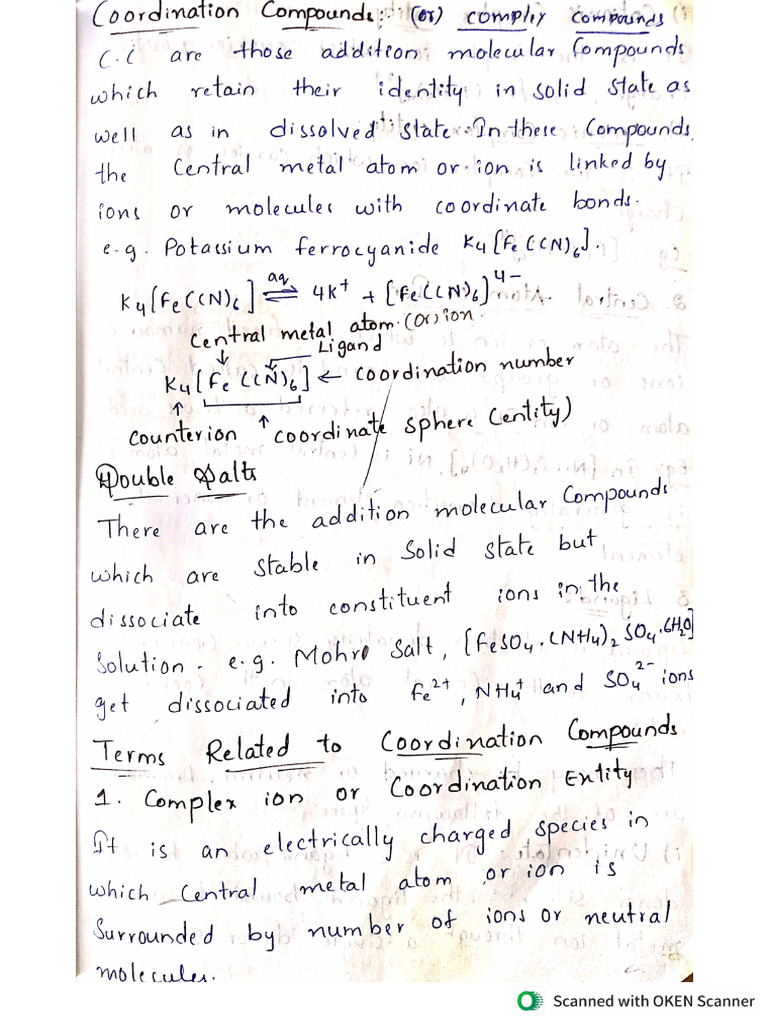 Coordination Compounds: (or) complex compounds
C.C are those addition molecular Compounds
which retain their identity in solid state as
well as in dissolved state. In these Compounds,
the Central metal atom or ion is linked by
ions or molecules with coordinate bonds.
e.g. Potassium ferrocyanide K4[Fe(CN)6].
K4[Fe(CN)6] ⇌ 4K+ + [Fe(CN)6]4-
aq
Central metal atom (or) ion.
Ligand
K4[Fe(CN)6] ← coordination number
counterion ↑ coordinate sphere (entity)
Double Salts
There are the addition molecular Compounds
which are stable in Solid state but
dissociate into constituent ions in the
Solution. e.g. Mohr Salt, [FeSO4.(NH4)2SO4.6H2O]
get dissociated into Fe2+, NH4+ and SO4 2- ions
Terms Related to Coordination Compounds
1. Complex ion or Coordination Entity
It is an electrically charged species in
which Central metal atom or ion is
Surrounded by number of ions or neutral
molecules.
Scanned with OKEN Scanner